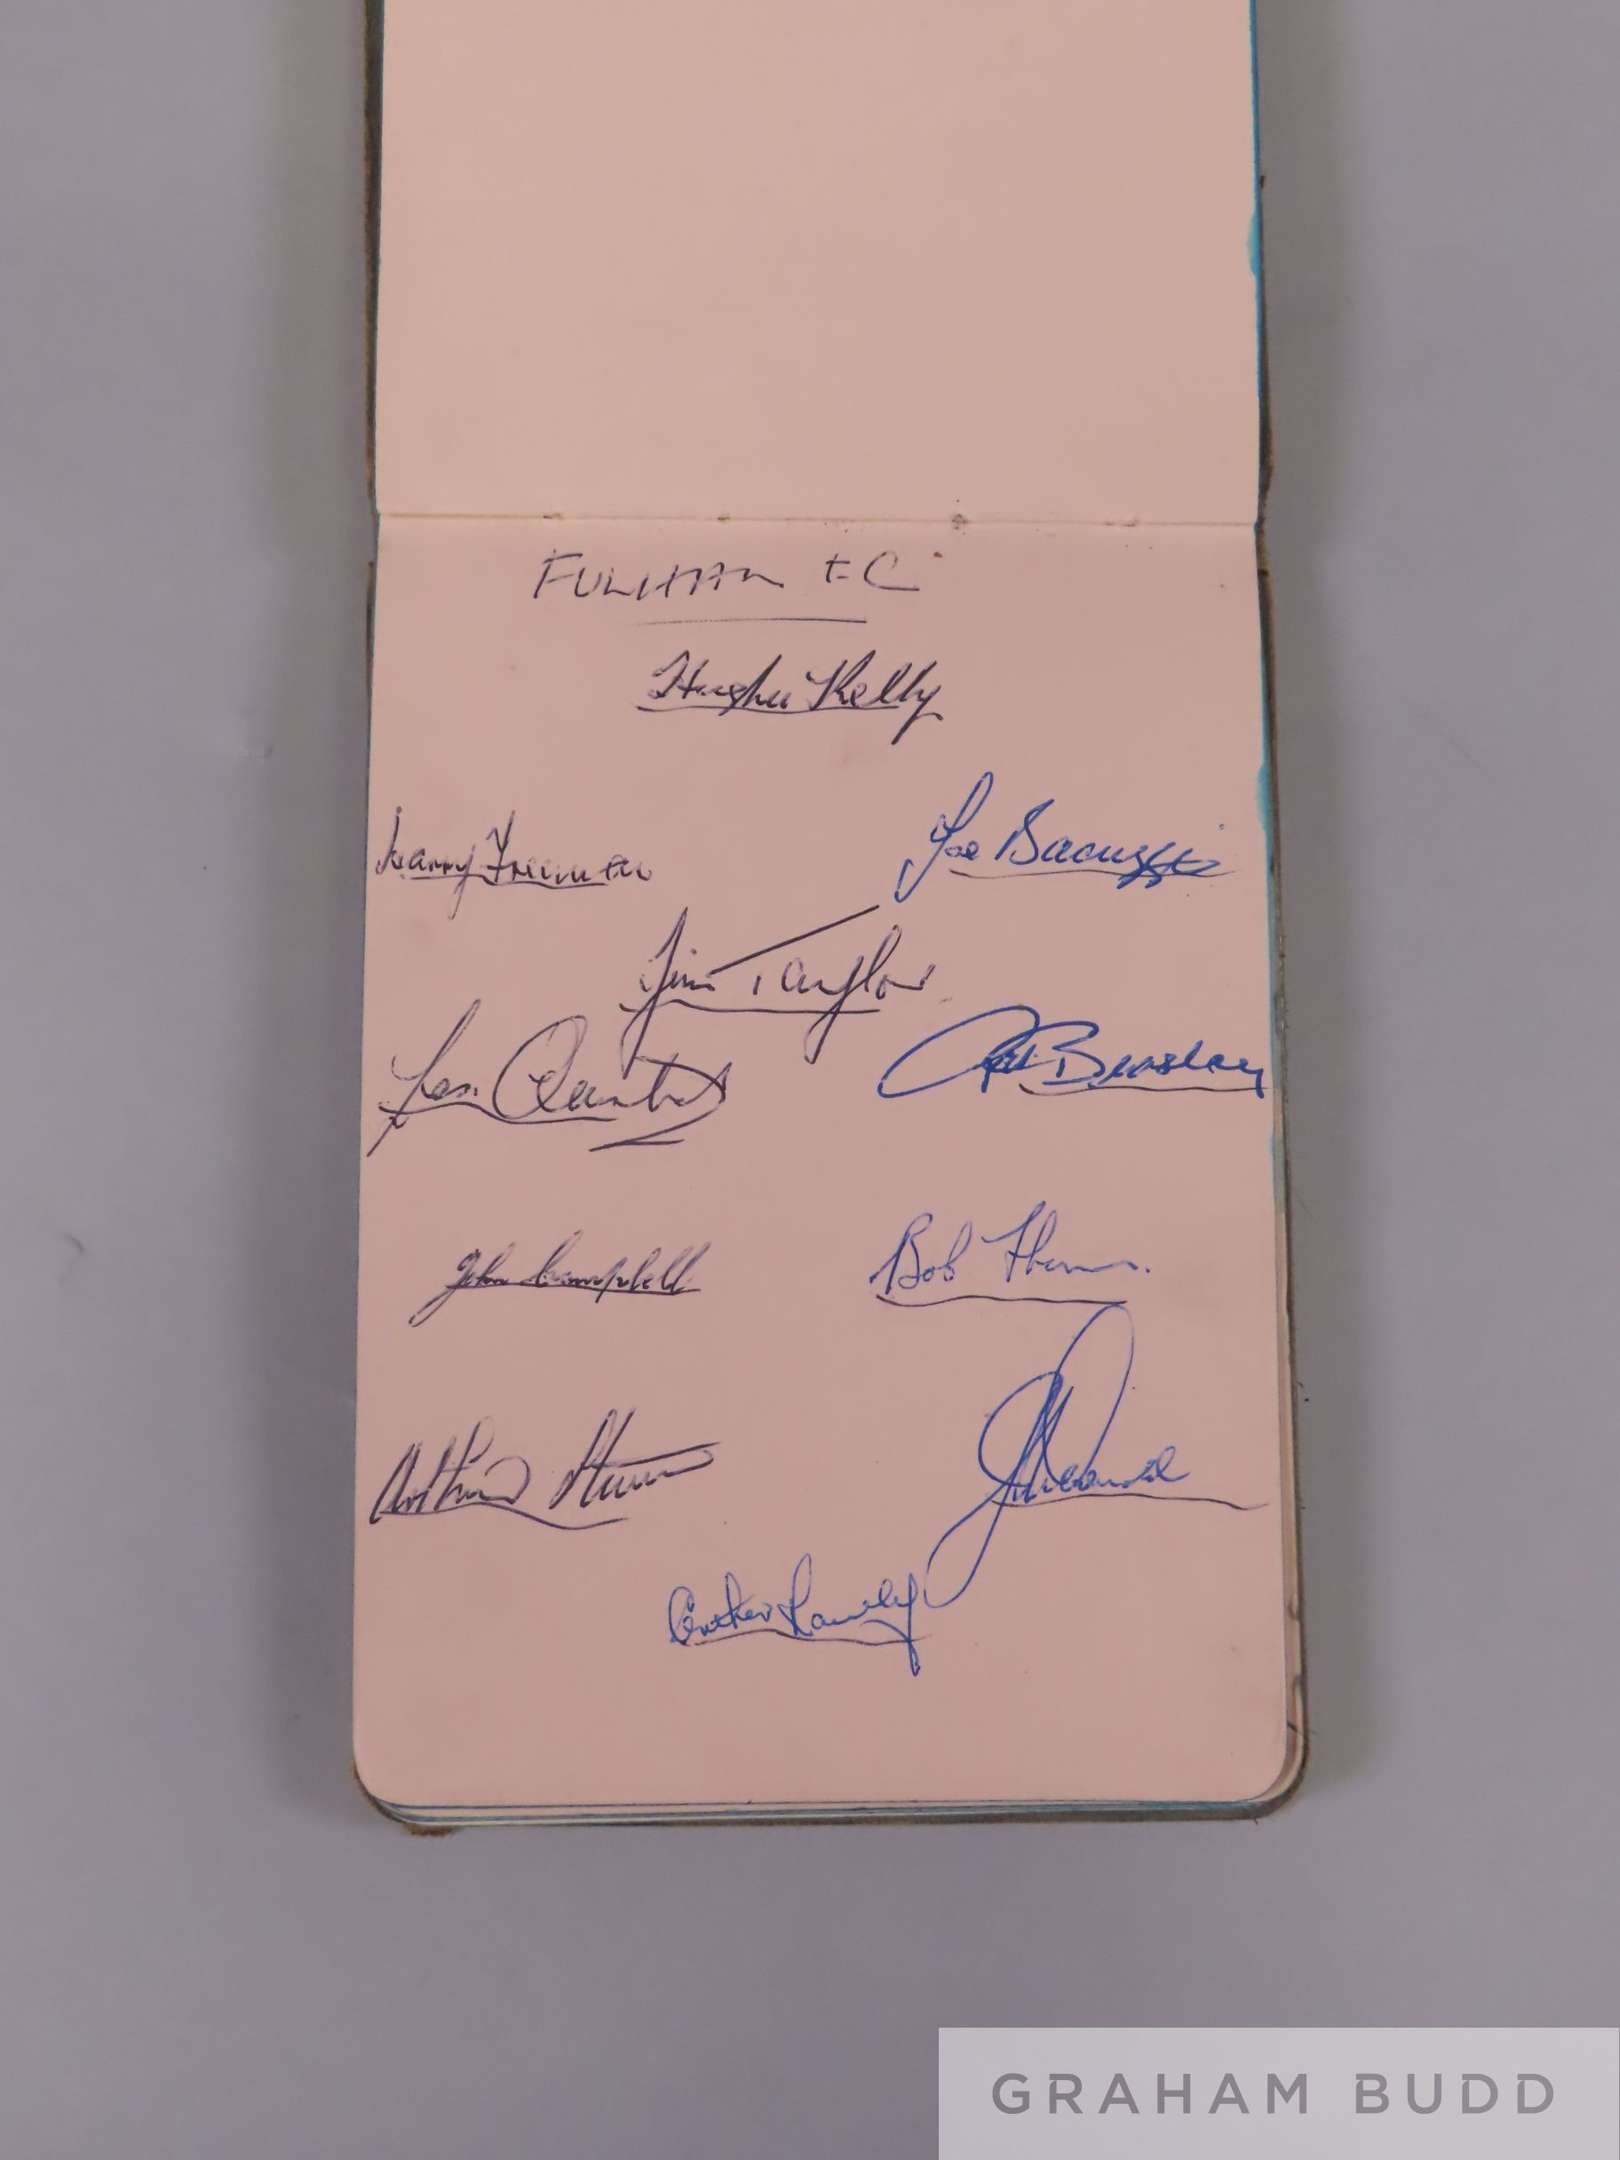 FULHAM F.C
Hugh Kelly
Harry Freeman
Joe Bacuzzi
Jim Taylor
Len Quested
Pat Beasley
John Campbell
Bob Thomas
Arthur Stevens
J McDonald
GRAHAM BUDD